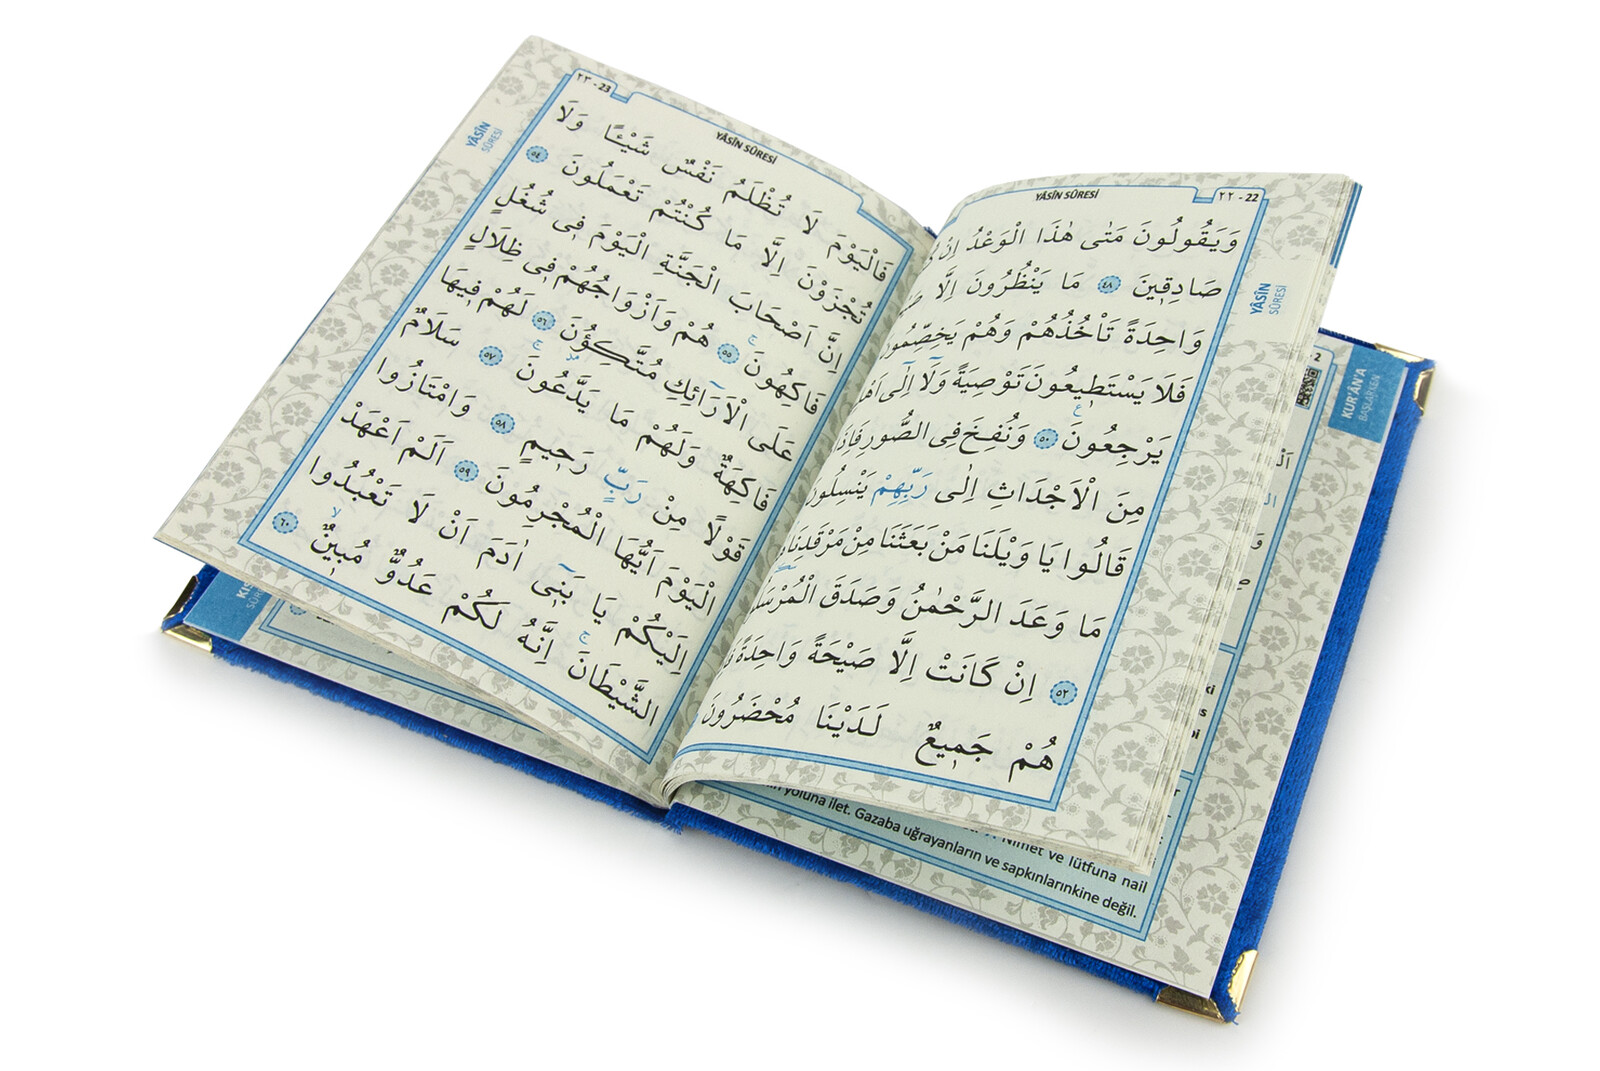 ٢٢ - 22
YÂSÎN SÛRESİ
وَيَقُولُونَ مَتٰى هٰذَا الْوَعْدُ اِنْ
صَادِقٖينَ ٤٨ مَا يَنْظُرُونَ اِلَّا
وَاحِدَةً تَأْخُذُهُمْ وَهُمْ يَخِصِّمُونَ
فَلَا يَسْتَطٖيعُونَ تَوْصِيَةً وَلَٓا اِلٰٓى
يَرْجِعُونَ ٥٠ وَنُفِخَ فِى الصُّورِ فَاِذَا
مِنَ الْاَجْدَاثِ اِلٰى رَبِّهِمْ يَنْسِلُونَ
قَالُوا يَا وَيْلَنَا مَنْ بَعَثَنَا مِنْ مَرْقَدِنَا
مَا وَعَدَ الرَّحْمٰنُ وَصَدَقَ
٥٢ اِنْ كَانَتْ اِلَّا صَيْحَةً وَاحِدَةً
هُمْ جَمٖيعٌ لَدَيْنَا مُحْضَرُونَ
YÂSÎN
SÛRESİ
٢٣ - 23
YÂSÎN SÛRESİ
فَالْيَوْمَ لَا تُظْلَمُ نَفْسٌ شَيْـًٔا وَلَا
تُجْزَوْنَ اِلَّا مَا كُنْتُمْ تَعْمَلُونَ ٥٤
اِنَّ اَصْحَابَ الْجَنَّةِ الْيَوْمَ فٖى شُغُلٍ
فَاكِهُونَ ٥٥ هُمْ وَاَزْوَاجُهُمْ فٖى ظِلَالٍ
عَلَى الْاَرَٓائِكِ مُتَّكِـؤُ۫نَ ٥٦ لَهُمْ فٖيهَا
فَاكِهَةٌ وَلَهُمْ مَا يَدَّعُونَ ٥٧ سَلَامٌ
قَوْلًا مِنْ رَبٍّ رَحٖيمٍ ٥٨ وَامْتَازُوا
الْيَوْمَ اَيُّهَا الْمُجْرِمُونَ ٥٩ اَلَمْ اَعْهَدْ
اِلَيْكُمْ يَا بَنٖٓى اٰدَمَ اَنْ لَا تَعْبُدُوا
الشَّيْطَانَ اِنَّهُ لَكُمْ عَدُوٌّ مُبٖينٌ ٦٠
YÂSÎN
SÛRESİ
2
KUR'ÂN'A
BAŞLARKEN
yoluna ilet. Gazaba uğrayanların ve sapkınlarınkine değil.
Nimet ve lütfuna nail